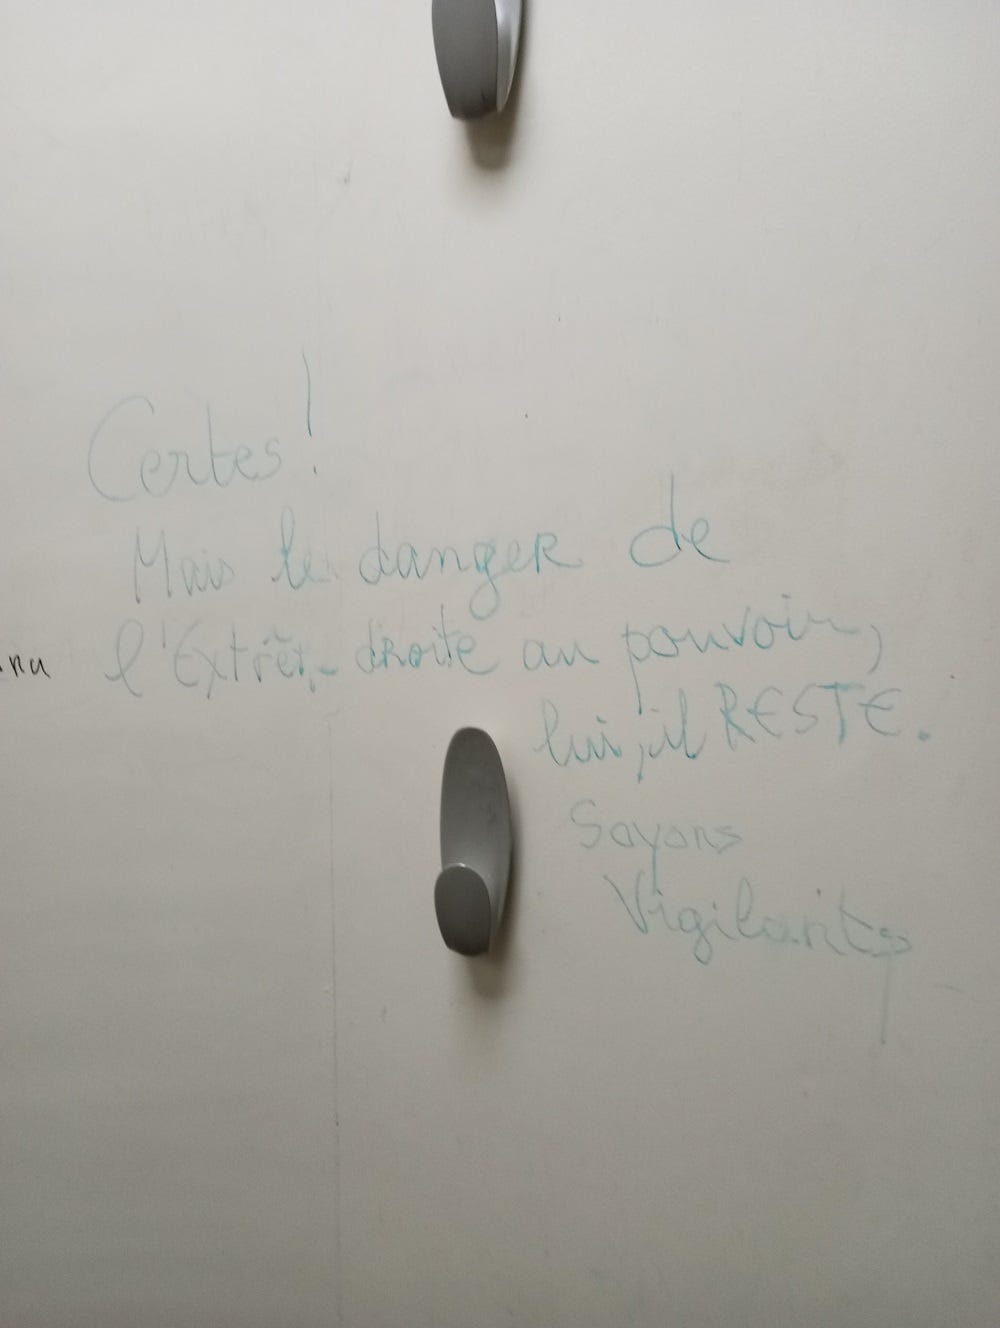 Certes !
Mais le danger de
l'Extrêm- droite au pouvoir,
lui, il RESTE.
Soyons
Vigilants